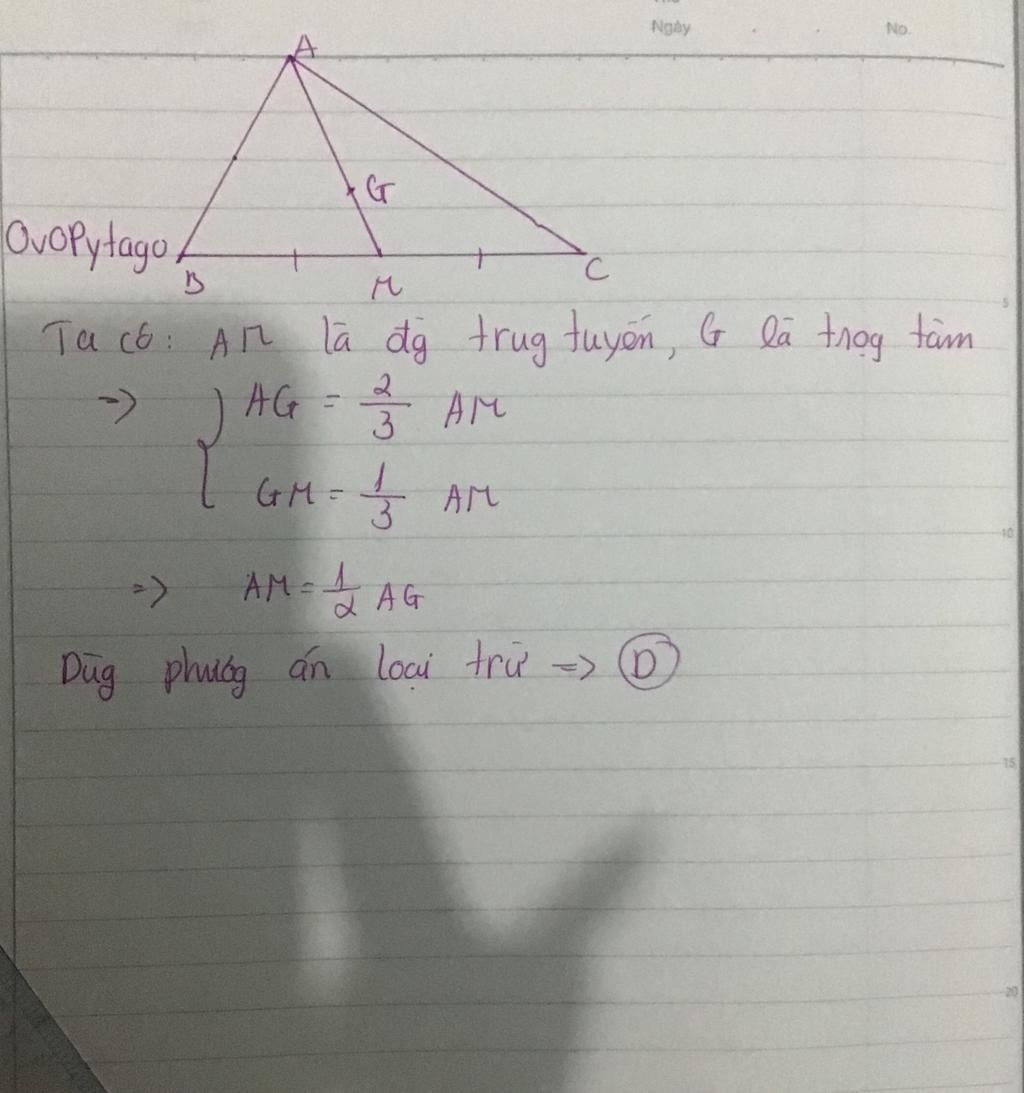 Ngày No.
A
G
OvOPytago
B M C
5
Ta có: AM là đg trug tuyến, G là trọg tâm
=> { AG = 2/3 AM
GM = 1/3 AM
10
=> AM = 1/2 AG
Dùg phươg án loại trừ => D
15
20